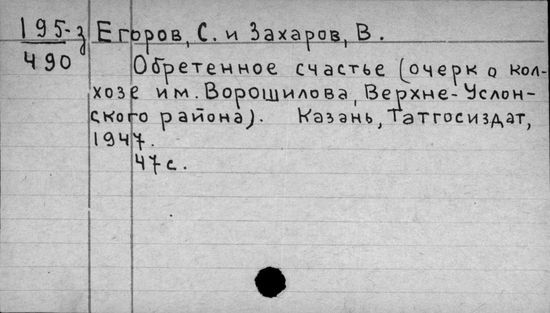 195-з Егоров, С. и Захаров, В.
490
Обретенное счастье (очерк о кол-
хозе им. Ворошилова, Верхне-Услон-
ского района). Казань, Татгосиздат,
1947.
47 с.